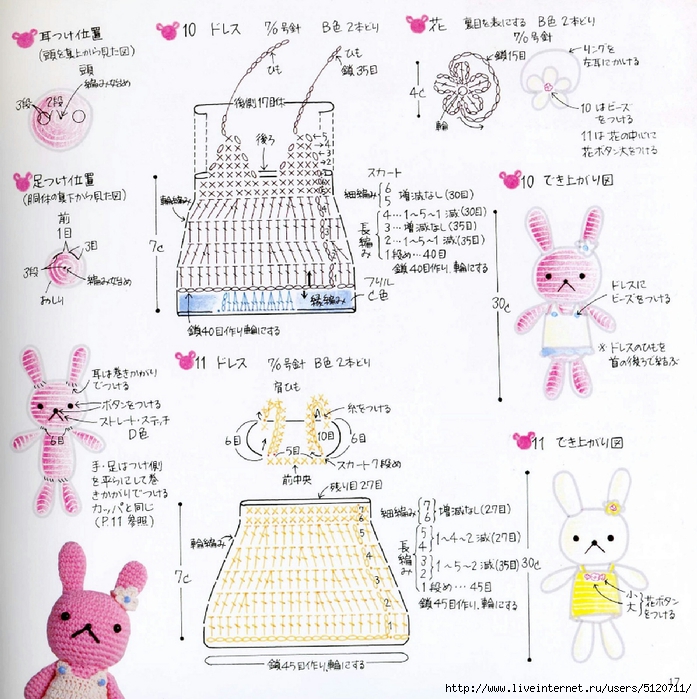 耳つけ位置
(頭を真上から見た図)
頭
編みなはじめ
3段
2段
足つけ位置
(胴体の真下から見た図)
前
1目
3目
3段
編みなはじめ
おしり
耳は巻きかがり
でつける
ボタンをつける
ストレート・ステッチ
D色
6目
手・足はつけ側
を平らにして巻
きかがりでつける
カッパと同じ
(P.11 参照)
10 ドレス 7/0号針 B色 2本どり
ひも
ひも
鎖35目
後側17目休
後ろ
輪編み
7c
スカート
細編み
6
5 増減なし(30目)
長編み
4…1~5~1 減(30目)
3…増減なし(35目)
2…1~5~1 減(35目)
1段め…40目
鎖40目作り、輪にする
フリル
C色
縁編み
鎖40目作り輪にする
花 裏目を表にする B色 2本どり
7/0号針
鎖15目
4c
輪
リングを
左耳にかける
10はビーズ
をつける
11は花の中心に
花ボタン大をつける
10 でき上がり図
30c
ドレスに
ビーズをつける
※ドレスのひもを
首の後ろで結ぶ
11 ドレス 7/0号針 B色 2本どり
肩ひも
糸をつける
6目
10目
6目
5目
スカート7段め
前中央
残り目27目
輪編み
7c
細編み
7
6 増減なし(27目)
長編み
5
4 1~4~2 減(27目)
3
2 1~5~2 減(35目)
1段め…45目
鎖45目作り、輪にする
鎖45目作り、輪にする
11 でき上がり図
30c
小
大
花ボタン
をつける
17
http://www.liveinternet.ru/users/5120711/